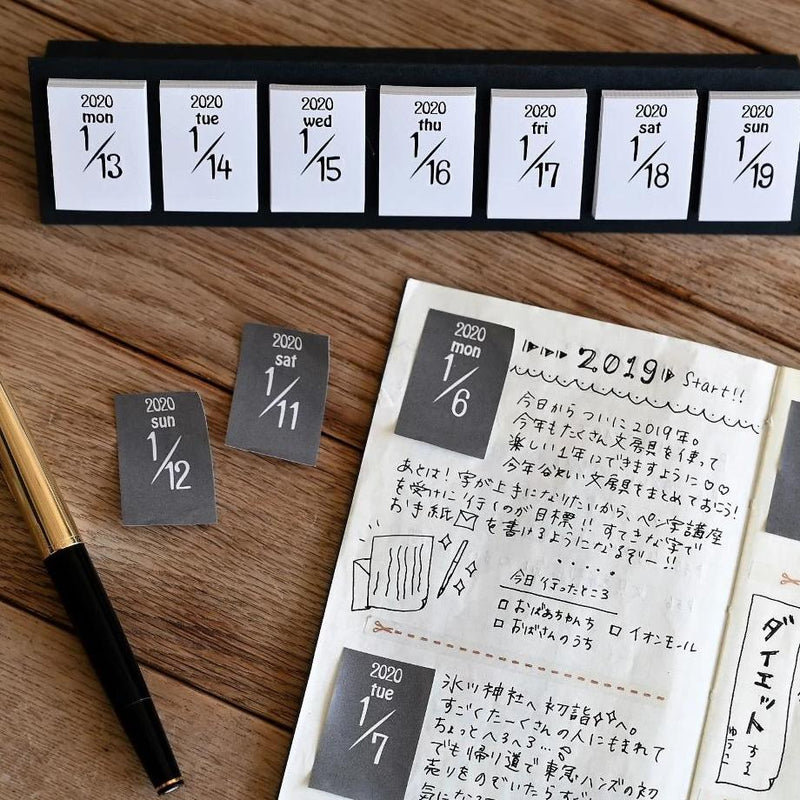 2020
mon
1/13
2020
tue
1/14
2020
wed
1/15
2020
thu
1/16
2020
fri
1/17
2020
sat
1/18
2020
sun
1/19
2020
sat
1/11
2020
sun
1/12
2020
mon
1/6
2019 Start!!
今日からついに2019年。
今年もたくさん文房具を使って
楽しい1年にできますように♡♡
今年欲しい文房具をまとめておこう!
あとは!字が上手になりたいから、ペン字講座
を受けに行くのが目標!!すてきな字で
お手紙を書けるようになるぞー!!
今日行ったところ
□ おばあちゃんち □ イオンモール
□ おばさんのうち
2020
tue
1/7
氷川神社へ初詣へ。
すごくたーくさんの人にもまれて
ちょっとへろへろ…
でも帰り道で東急ハンズの初
売りをのぞいたら
気になる
ダイエットする